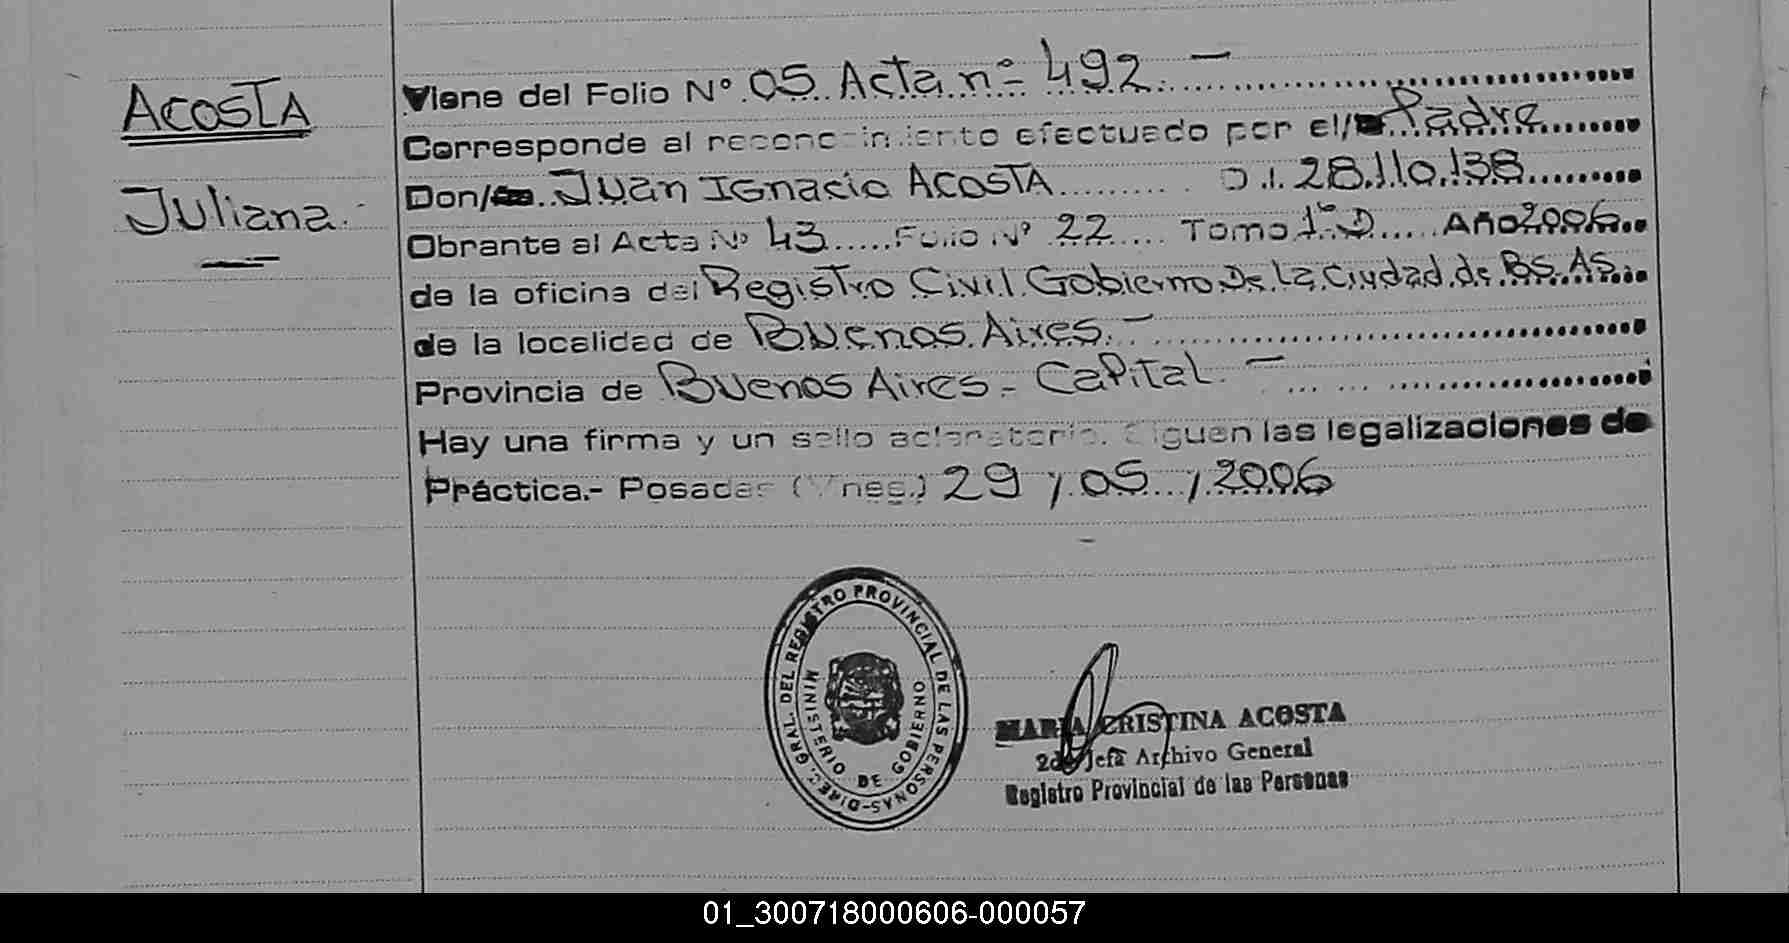 ACOSTA
Juliana.-
Viene del Folio Nº 05 Acta nº 492. —
Corresponde al reconocimiento efectuado por el/ Padre
Don/ Juan Ignacio ACOSTA D.I. 28.110.138
Obrante al Acta Nº 43 Folio Nº 22 Tomo 1º D Año 2006
de la oficina del Registro Civil Gobierno De La Ciudad de Bs. As.
de la localidad de Buenos Aires. —
Provincia de Buenos Aires - Capital. —
Hay una firma y un sello aclaratorio. Siguen las legalizaciones de
Práctica.- Posadas (Mnes.) 29 / 05 / 2006
DIREC. GRAL. DEL REGISTRO PROVINCIAL DE LAS PERSONAS-
MINISTERIO DE GOBIERNO
MARIA CRISTINA ACOSTA
2da Jefa Archivo General
Registro Provincial de las Personas
01_300718000606-000057